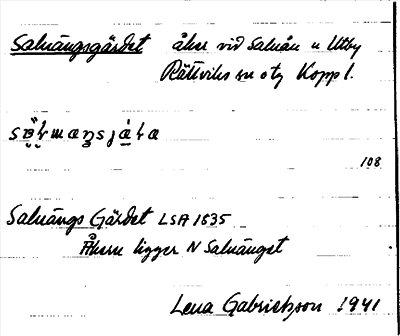 Saluängsgärdet åker vid Saluån n Utby
Rättviks sn o tg Kopp l.
108
Saluängs Gärdet LSA 1835
Åkern ligger N Saluänget
Lena Gabrielsson 1941